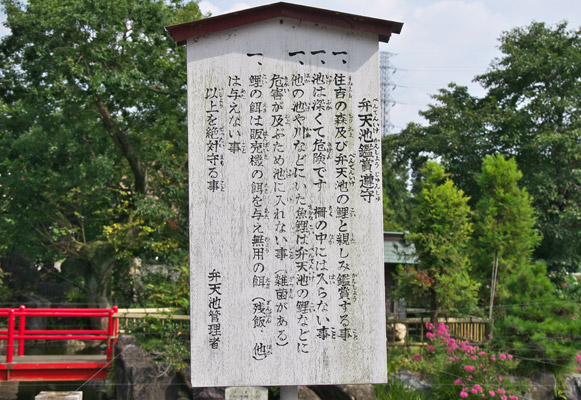 弁天池鑑賞遵守
一、住吉の森及び弁天池の鯉と親しみ鑑賞する事
一、池は深くて危険です 柵の中には入らない事
一、池の池や川などにいた魚鯉は弁天池の鯉などに
危害が及ぶため池に入れない事(雑菌がある)
一、鯉の餌は販売機の餌を与え無用の餌(残飯、他)
は与えない事
以上を絶対守る事
弁天池管理者